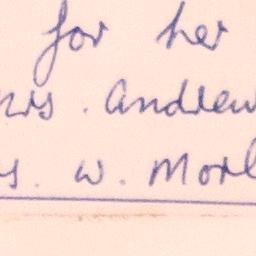 for her
Mrs. Andrew
s. W. Morl